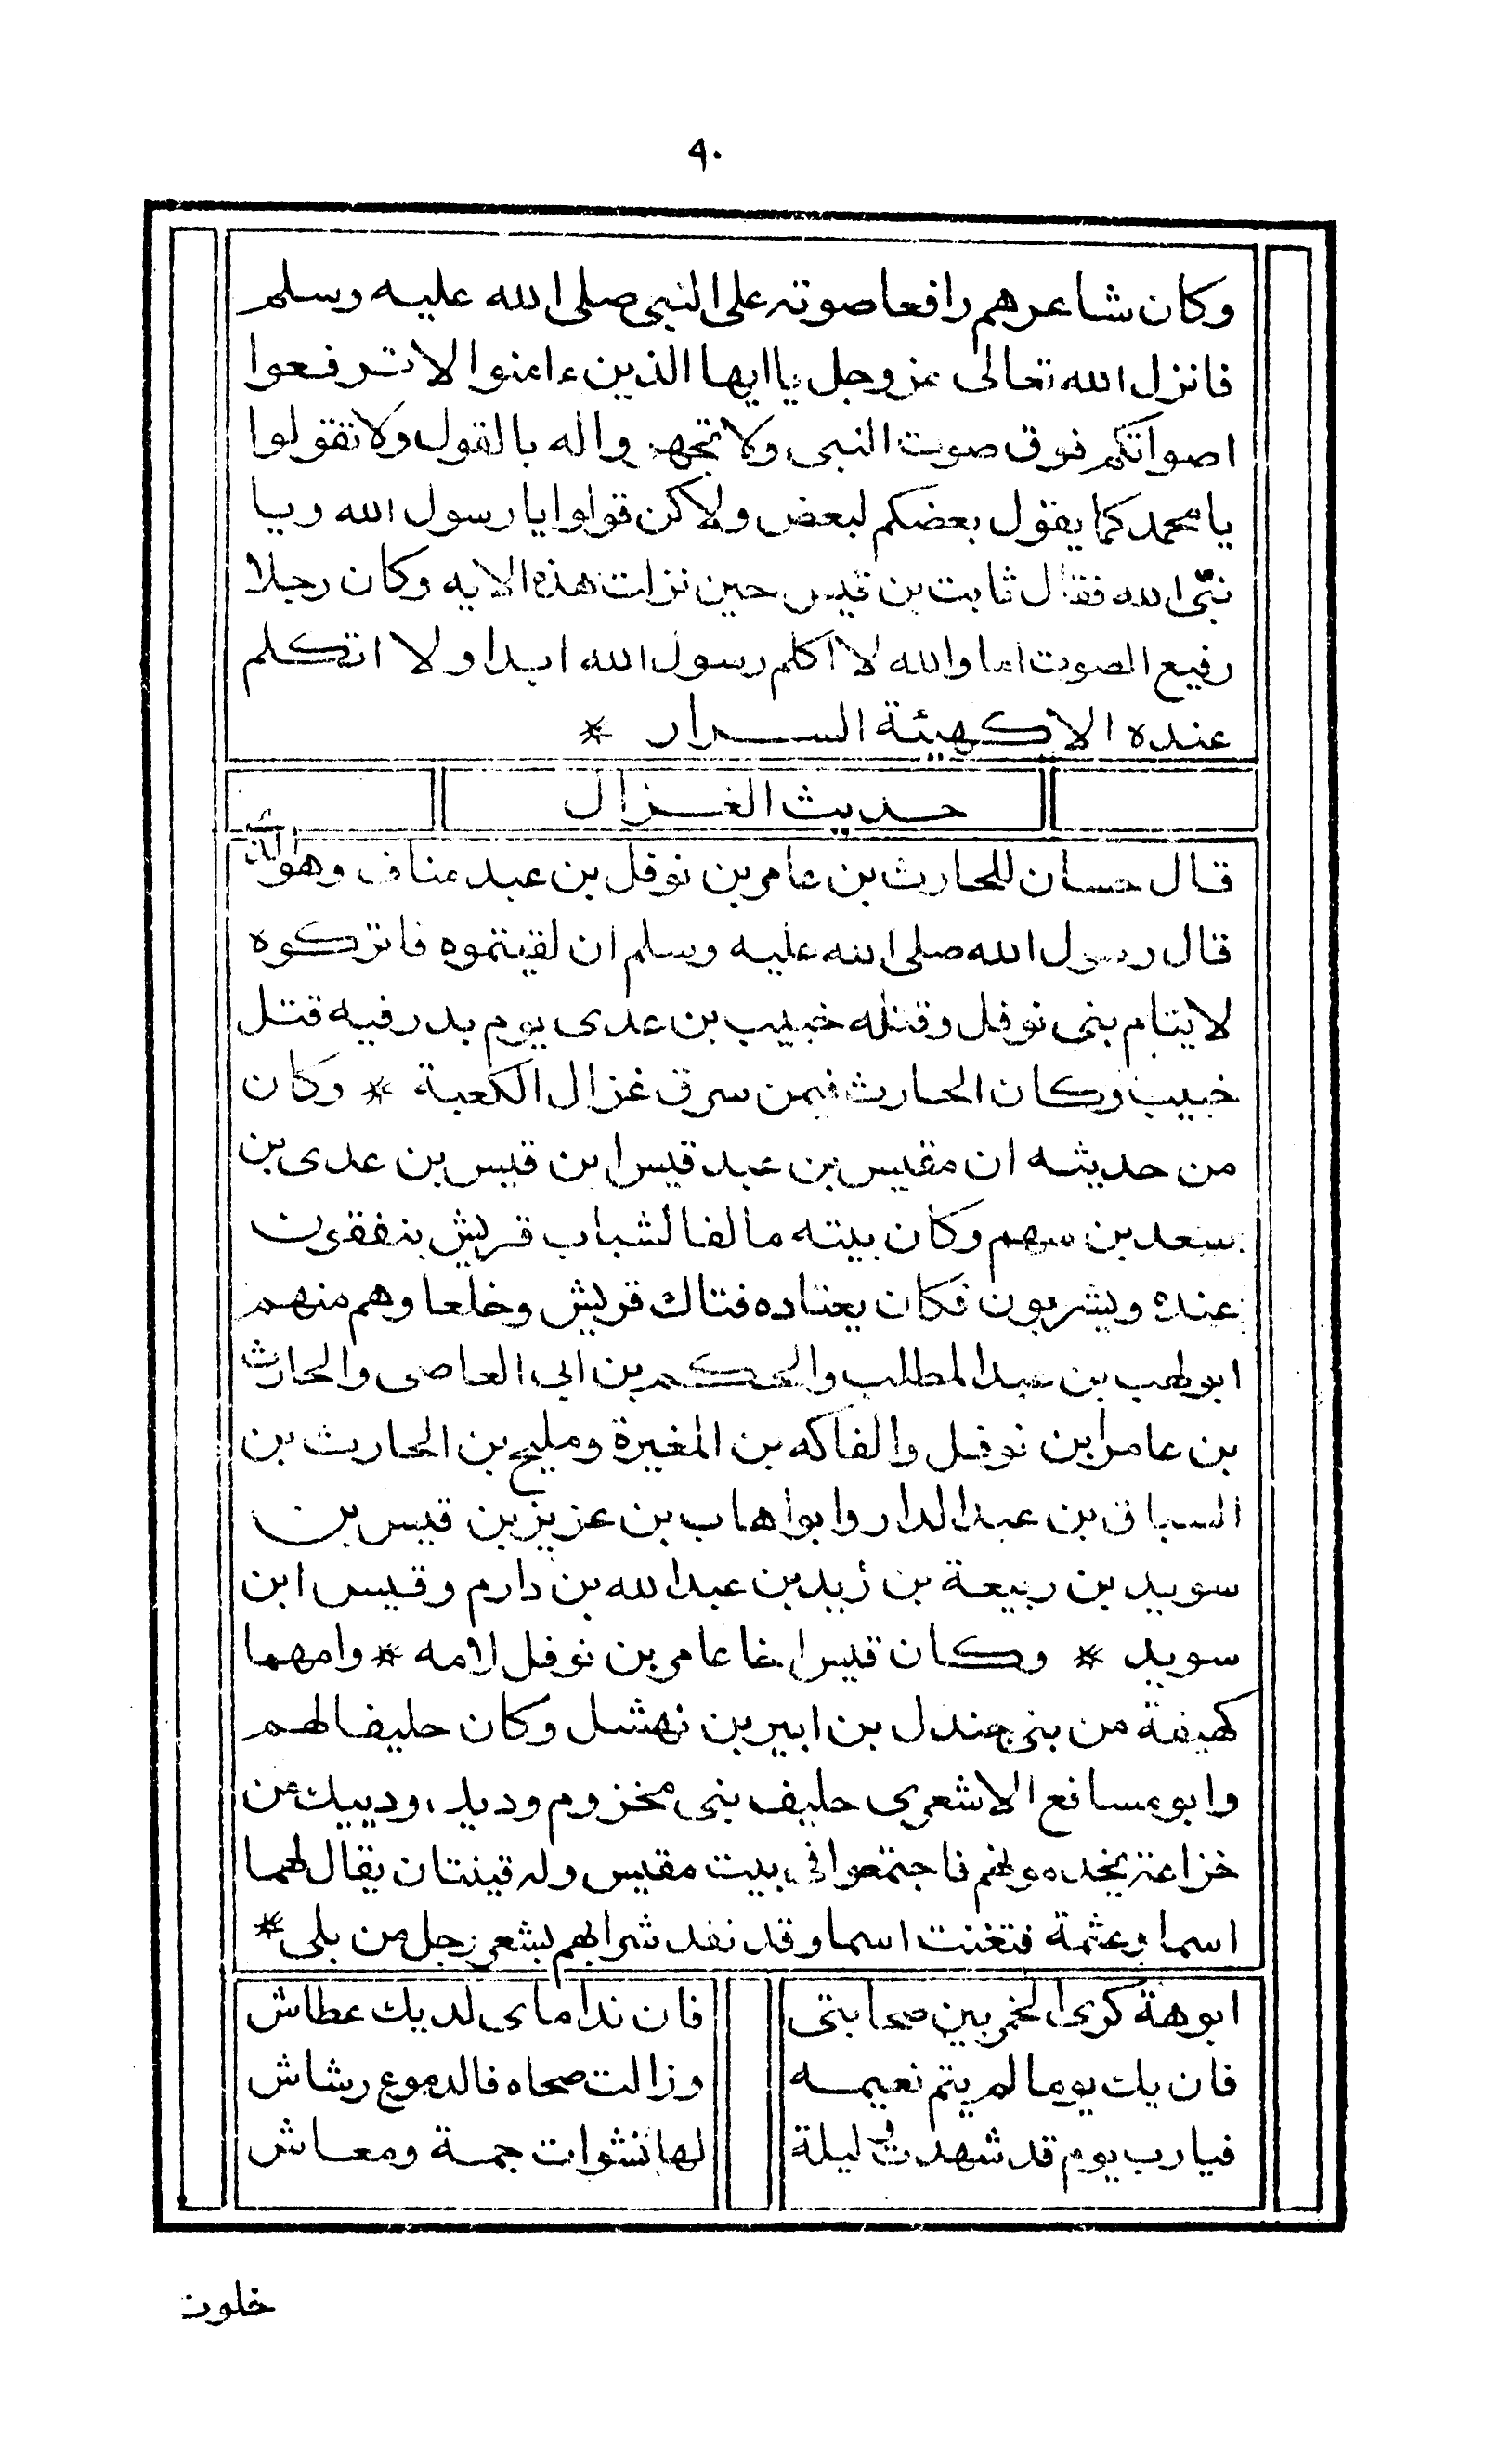 ٩٠
وكان شاعرهم رافعا صوته على النبي صلى الله عليه وسلم
فانزل الله تعالى عز وجل يا ايها الذين ءامنوا لا ترفعوا
اصواتكم فوق صوت النبي ولا تجهروا له بالقول ولا تقولوا
يا محمد كما يقول بعضكم لبعض ولاكن قولوا يا رسول الله ويا
نبّى الله فقال ثابت بن قيس حين نزلت هذه الايه وكان رجلا
رفيع الصوت اما والله لا اكلم رسول الله ابدا ولا اتكلم
عنده الا كهيئة السرار *
حديث الغزال
قال حسان للحارث بن عامر بن نوفل بن عبد مناف وهو
قال رسول الله صلى الله عليه وسلم ان لقيتموه فاتركوه
لايتام بنى نوفل وقتله خبيب بن عدى يوم بدر فيه قتل
خبيب وكان الحارث فيمن سرق غزال الكعبة * وكان
من حديثه ان مقيس بن عبد قيس ابن قيس بن عدى بن
سعد بن سهم وكان بيته مالفا لشباب قريش ينفقون
عنده ويشربون فكان يعتاده فتاك قريش وخلعاوهم منهم
ابو لهب بن عبد المطلب والحكم بن ابى العاصى والحارث
بن عامر ابن نوفل والفاكه بن المغيرة ومليح بن الحارث بن
السباق بن عبد الدار وابو اهاب بن عزيز بن قيس بن
سويد بن ربيعة بن زيد بن عبد الله بن دارم وقيس ابن
سويد * وكان قيس اخا عامر بن نوفل لامه * وامهما
كهيفة من بنى جندل بن ابير بن نهشل وكان حليفا لهم
وابو مسافع الاشعرى حليف بنى مخزوم ودييك من
خزاعة يخدمونهم فاجتمعوا فى بيت مقيس وله قينتان يقال لهما
اسما وعثمة فتغنت اسما وقد نفد شرابهم بشعر رجل من بلى *
ابوهة كرى الخمر بين صحابتى فان نداماى لديك عطاش
فان يك يوما لم يتم نعيمه وزالت صحاه فالدموع رشاش
فيا رب يوم قد شهدت وليلة لها نشوات جمة ومعاش
خلون